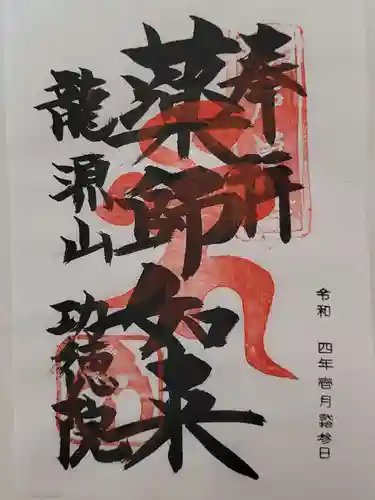 奉拝
薬師如来
龍源山
功徳院
令和 四年壱月弐拾参日